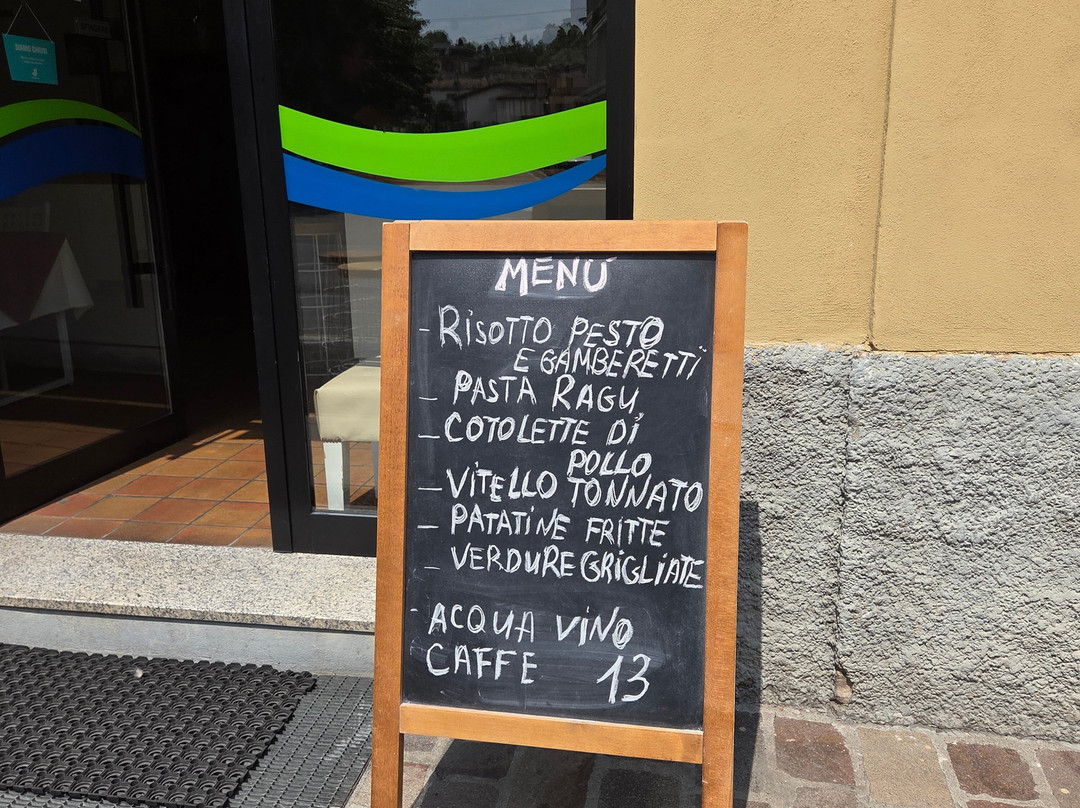 MENÚ
- RISOTTO PESTO
E GAMBERETTI
- PASTA RAGU
- COTOLETTE DI
POLLO
- VITELLO TONNATO
- PATATINE FRITTE
- VERDURE GRIGLIATE
- ACQUA VINO
CAFFE 13